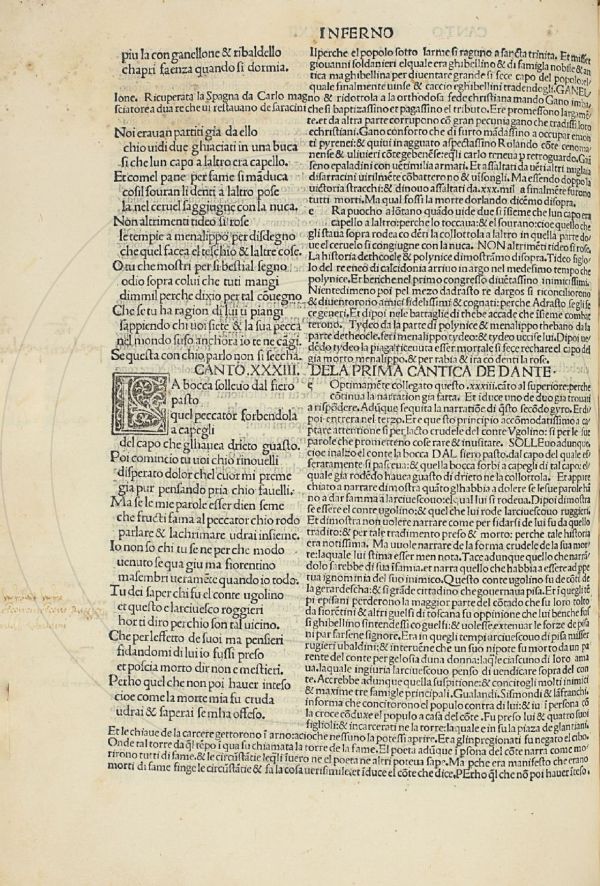 INFERNO
piu la con ganellone & ribaldello
chapri faenza quando si dormia.
Ione. Ricuperata la Spagna da Carlo magno & ridottola a la orthodosa fede christiana mando Gano imba/
sciatore a due re che ui restauano de saracini che si baptizassino et pagassino el tributo.
Noi erauan partiti gia da ello
chio uidi due ghiacciati in una buca
si che lun capo a laltro era capello.
Et comel pane per fame si mãduca
cosil souran li denti a laltro pose
la nel ceruel saggiugne con la nuca.
Non altrimenti tideo si rose
le tempie a menalippo per disdegno
che quel facea el teschio & laltre cose.
O tu che mostri per si bestial segno
odio sopra colui che tuti mangi
dimmil perche dixio per tal cõuegno
Che se tu ha ragion di lui ti piangi
sappiendo chi uoi siete & la sua pecca
nel mondo suso anchora io te ne cãgi.
Se questa con chio parlo non si seccha.
Il perche el popolo sotto larme si raguno a sancta trinita. Et misser
giouanni soldanieri el quale era ghibellino & di famigla nobile & an
tica ma ghibellina per diuentare grande si fece capo del popolo el
quale finalmente uinse & caccio e ghibellini tradendogli. GANEL
te. et da altra parte corrupono cõ gran pecunia gano che tradissi loro
e christiani. Gano consorto che di surto mãdassino a occupare emon
ti pyrenei: & quiui in agguato aspectassino Rolando cõte cenoma
nense & uliuieri cõte gebenẽse: e qli carlo tenea p retroguardo. Gai
seno epaladini con uẽti mila armari. Et assaltati da uẽti altri miglaia
di sarracini uirilmẽte cõbatterono & uisongli. Ma essendo doppo la
uictoria stracchi: & di nouo assaltati da .xxx. mil a finalmẽte furono
tutti morti. Ma qual fossi la morte dorlando dicẽmo disopra.
e Ra puocho a lõtano quãdo uide due si isieme che lun capo era
capello a laltro: perche lo toccaua: & el sourano: cioe quello che
gli staua sopra rodea co dẽti la collottola a laltro in quella parte do/
ue el ceruelo si congiugne con la nuca. NON altrimẽti tideo si rose.
La historia dethocle & polynice dimostramo disopra. Tideo figlo/
lo del re eneo di calcidonia arriuo in argo nel medesimo tempo che
polynice. Et benche nel primo congresso diuẽtassino inimicissimi.
Nientedimeno poi pel mezo dadrasto re dargos si riconciliorono
& diuentorono amici fidelissimi & cognati: perche Adrasto segli fe
ce generi. Et dipoi nele battaglie di thebe accade che isieme combat
terono. Tydeo da la parte di polynice & menalippo thebano da la
parte dethocle. seri menalippo tydeo: & tydeo uccise lui. Dipoi ue/
dẽdo tydeo la piaga riceuuta esser mortale si fece rechare el capo del
gia morto menalippo. & per rabia & ira co denti la rose.
CANTO. XXXIII. DELA PRIMA CANTICA DE DANTE.
LA bocca solleuo dal fiero
pasto
quel peccator forbendola
a capegli
del capo che glhauea drieto guasto.
Poi comincio tu uoi chio rinouelli
disperato dolor chel cuor mi preme
gia pur pensando pria chio fauelli.
Ma se le mie parole esser dien seme
che fructi fama al peccator chio rodo
parlare & lachrimare udrai insieme.
Io non so chi tu se ne per che modo
uenuto se qua giu ma fiorentino
ma sembri ueramẽte quando io todo.
Tu dei saper chi fu el conte ugolino
et questo e larciuesco roggieri
hor ti diro per chio son tal uicino.
Che per leffetto de suoi ma pensieri
fidandomi di lui io fussi preso
et poscia morto dir non e mestieri.
Perho quel che non poi hauer inteso
cioe come la morte mia fu cruda
udrai & saperai se mha offeso.
e Optimamẽte collegato questo .xxxiii. cãto al superiore: perche
cõtinua la narration gia facta. Et iduce uno de duo gia trouati
a rispõdere. Adũque seguita la narratiõe di qsto secõdo gyro. Et di/
poi entrera nel terzo. Et e questo principio accomodatissimo a ca
ptare attentione si per laude crudele del conte Ugolino: si per le sue
parole che prometteno cose rare & inusitate. SOLLEuo adunque
cioe inalzo el conte la bocca DAL fiero pasto. dal capo del quale ef
feratamente si pascua: & quella bocca forbi a capegli di tal capo: el
quale gia rodẽdo hauea guasto di drieto ne la collottola. Et appie
chiato a narrare dimostra quãto gl habbia a dolere se le sue parole hã
no a dar famma a larciuescouo: el qual lui si rodeua. Dipoi dimostra
se essere el conte ugolino: & quel che lui rode larciuescouo ruggieri.
Et dimostra non uolere narrare come per fidarsi de lui fu da quello
tradito: & per tale tradimento preso & morto: perche tale historia
era notissima. Ma uuole narrare de la forma crudele de la sua mor/
te: laquale lui stima esser men nota. Tace adunque quello che narrã
dolo sarebbe di sua ifamia. et narra quello che habbia a essere ad ppe
tua ignominia del suo inimico. Questo conte ugolino fu de cõti de
la gerardescha: & si grãde cittadino che gouernaua pisa. Et i quegli tẽ
pi episani perderono la maggior parte del cõtado che fu loro tolto
da fiorẽtini & altri guelfi di toscana fu oppinione che lui benche fus
si ghibellino sintendessi co guelfi: & uolesse extenuar le forze de pisa
ni par farsene signore. Era in quegli tempi arciuescouo di pisa misser
rugieri ubaldini: & interuẽne che un suo nipote fu morto da un pa
rente del conte per gelosia duna donna: laqle ciascuno di loro ama
ua. laquale ingiuria larciuescouo penso di uendicare sopra del con
te. Accrebbe adunque quella suspitione: & concitogli molti inimici
& maxime tre famigle principali. Gualandi. Sismondi & lãfranchi.
informa che concitorono el popolo contra di lui: & iui i persona cõ
la croce cõduxe el popolo a casa del cõte. Fu preso lui & quatro suoi
figlioli: & incarcerati ne la torre: laquale e in su la piaza de gl antiani.
Et le chiaue de la carcere gettorono ĩ arno: acioche nessuno la potessi aprire. Et a gli npregionati fu negato el cibo.
Onde tal torre da ql tẽpo i qua fu chiamata la torre de la fame. El poeta adũque i psona del cõte narra come mo/
rirono tutti di fame. & le circũstãtie leqli fuoro ne el poeta ne altri poteua sape. Ma pche era manifesto che erano
morti di fame finge le circũstãtie & fa la cosa uerisimile. et iduce el cõte che dice. PErho ql che nõ poi hauer iteso.